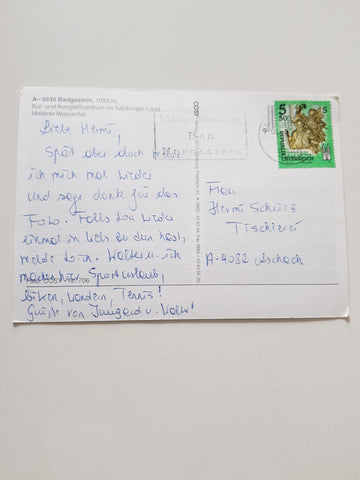 A-5640 Badgastein, 1083 m,
Kur- und Kongreßzentrum im Salzburger Land
Mittlerer Wasserfall
Liebe Hermi!
Spät aber doch
ich mich mal wieder
und sage danke für das
Foto. Falls Du wieder
einmal in Linz zu tun hast,
melde Dich. Walter u. ich
machen hier Sporturlaub,
biken, wandern, Tennis!
Grüße von Irmgard u. Walter
706
BAD
HOFGASTEIN
5 50
S
ÖSTERREICH
Frau
Hermi
Tischlerei
A-4082 Aschach